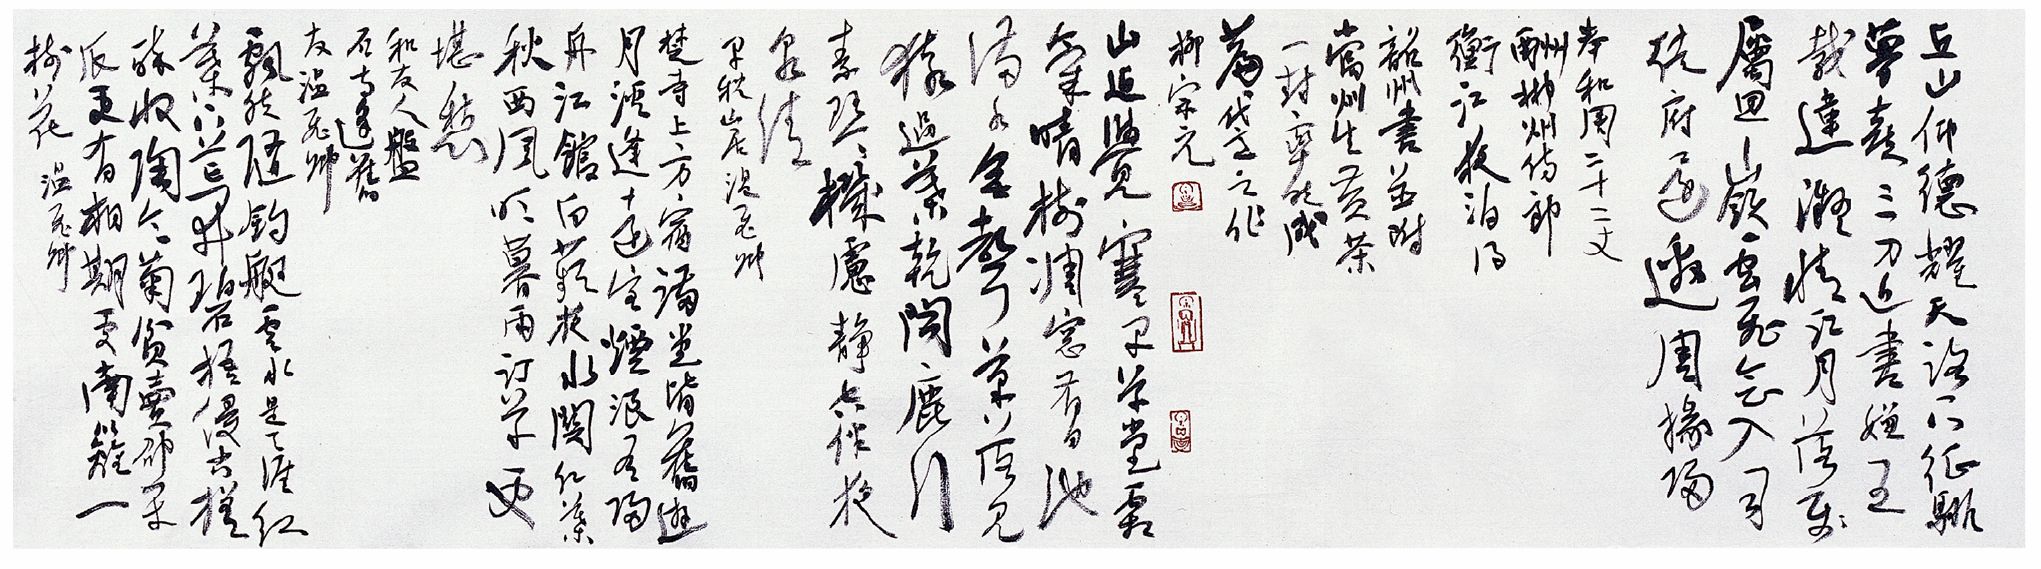 丘山仰德耀天路下征騑
夢喜三刀近書嫌五
載違凝情江月落
屬思嶺雲飛會入司
徒府還邀周掾歸
奉和周二十二丈
酬郴州侍郎
衡江夜泊得
韶州書並附
當州生黃茶
一封率然成
篇代意之作
柳宗元
山近覺寒早草堂霜
氣晴樹凋窗有日池
滿水無聲葉落見
猿過葉乾聞鹿行
素琴機慮靜空伴夜
泉清
早秋山居 溫飛卿
楚寺上方宿滿堂皆舊遊
月溪逢遠客煙浪有歸
舟江館白蘋夜水關紅葉
秋西風吹暮雨汀草更
堪愁
和友人盤
石寺逢舊
友溫飛卿
飄然隨釣艇雲水是天涯紅
葉下荒井碧梧侵古槎
醉收陶令菊貧賣邵平
瓜更有相期處南籬一
樹花 溫飛卿